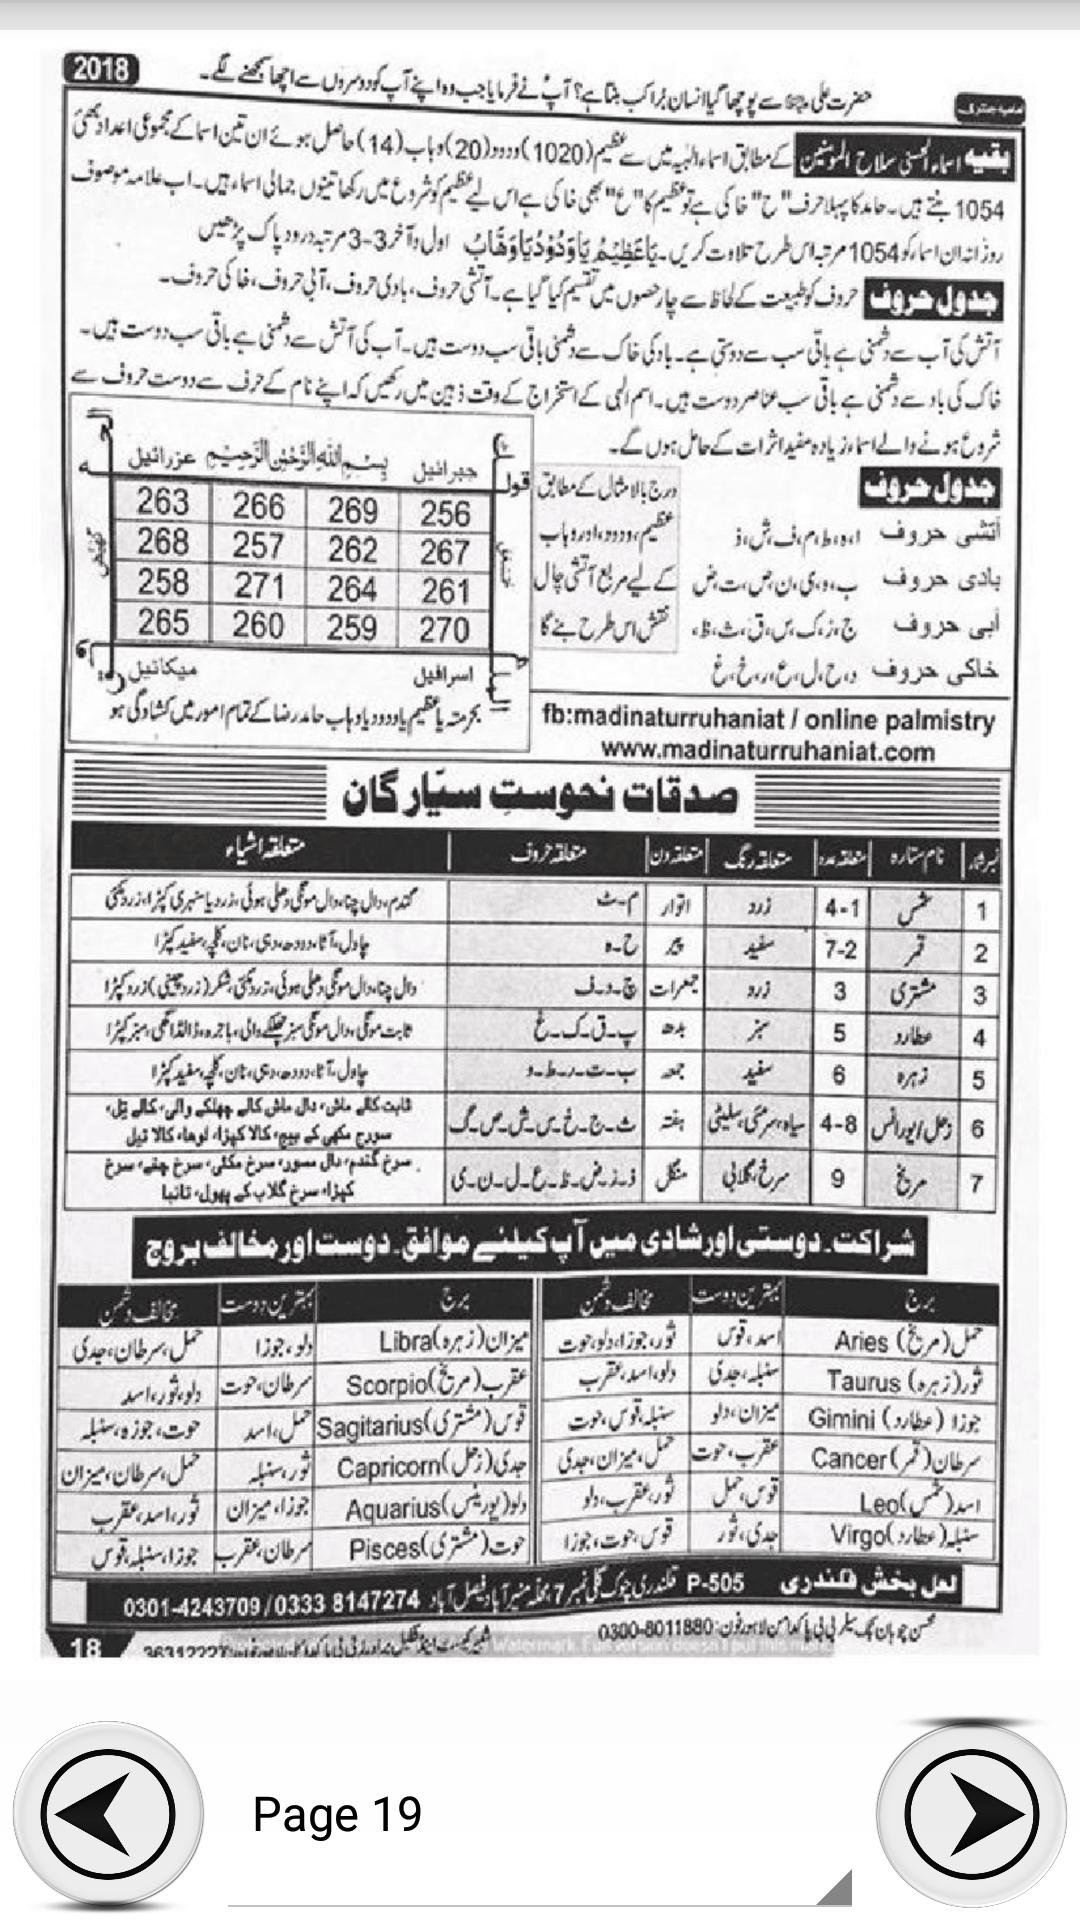 2018
حضرت علیؑ سے پوچھا گیا انسان بُرا کب بنتا ہے؟ آپؑ نے فرمایا جب وہ اپنے آپ کو دوسروں سے اچھا سمجھنے لگے۔
بقیہ اسماء الحسنیٰ سلاح المومنین کے مطابق اسماء الٰہیہ میں سے عظیم (1020) ودود (20) وہاب (14) حاصل ہوئے ان تین اسما کے مجموعی اعداد بھی
1054 بنتے ہیں۔ حامد کا پہلا حرف "ح" خاکی ہے تو عظیم کا "ع" بھی خاکی ہے اس لیے عظیم کو شروع میں رکھا تینوں جمالی اسماء ہیں۔ اب علامہ موصوف
روزانہ ان اسماء کو 1054 مرتبہ اس طرح تلاوت کریں۔ یَاعَظِیْمُ یَاوَدُوْدُ یَاوَھَّابُ اول و آخر 3-3 مرتبہ درود پاک پڑھیں
جدول حروف حروف کو طبیعت کے لحاظ سے چار حصوں میں تقسیم کیا گیا ہے۔ آتشی حروف، بادی حروف، آبی حروف، خاکی حروف۔
آتش کی آب سے دشمنی ہے باقی سب سے دوستی ہے۔ باد کی خاک سے دشمنی باقی سب دوست ہیں۔ آب کی آتش سے دشمنی ہے باقی سب دوست ہیں۔
خاک کی باد سے دشمنی ہے باقی سب عناصر دوست ہیں۔ اسم الٰہی کے استخراج کے وقت ذہن میں رکھیں کہ اپنے نام کے حرف سے دوست حروف سے
شروع ہونے والے اسماء زیادہ مفید اثرات کے حامل ہوں گے۔
جدول حروف
آتشی حروف ا، ہ، ط، م، ف، ش، ذ
بادی حروف ب، و، ی، ن، ص، ت، ض
آبی حروف ج، ز، ک، س، ق، ث، ظ
خاکی حروف د، ح، ل، ع، ر، خ، غ
درج بالا مثال کے مطابق
عظیم، ودود، اور وہاب
کے لیے مربع آتشی چال
نقش اس طرح بنے گا
جبرائیل بسم اللہ الرحمٰن الرحیم عزرائیل
قولہ
263 266 269 256
268 257 262 267
258 271 264 261
265 260 259 270
کھیعص
اسرافیل میکائیل
بحرمتہ یا عظیم یا ودود یا وہاب حامد رضا کے تمام امور میں کشادگی ہو
fb:madinaturruhaniat / online palmistry
www.madinaturruhaniat.com
صدقات نحوستِ سیّارگان
نمبر شمار نام ستارہ متعلقہ عدد متعلقہ رنگ متعلقہ دن متعلقہ حروف متعلقہ اشیاء
1 شمس 4-1 زرد اتوار م۔ٹ گندم، دال چنا، دال مونگی دھلی ہوئی، زرد یا سنہری کپڑا، زرد مکئی
2 قمر 7-2 سفید پیر ح۔ہ چاول، آٹا، دودھ، دہی، نان، کلچہ، سفید کپڑا
3 مشتری 3 زرد جمعرات چ۔د۔ف دال چنا، دال مونگی دھلی ہوئی، زرد مکئی، شکر (زرد چینی) زرد کپڑا
4 عطارد 5 سبز بدھ پ۔ق۔ک۔غ ثابت مونگی، دال مونگی سبز چھلکے والی، باجرہ، ڈالڈا گھی، سبز کپڑا
5 زہرہ 6 سفید جمعہ ب۔ت۔ر۔ط۔و چاول، آٹا، دودھ، دہی، نان، کلچہ، سفید کپڑا
6 زحل/یورانس 4-8 سیاہ، سرمئی، سلیٹی ہفتہ ث۔ج۔خ۔س۔ش۔ص۔گ ثابت کالے ماش، دال ماش کالے چھلکے والی، کالے تِل،
سورج مکھی کے بیج، کالا کپڑا، لوھا، کالا تیل
7 مریخ 9 سرخ، گلابی منگل ذ۔ز۔ض۔ظ۔ع۔ل۔ن۔ی سرخ گندم، دال مسور، سرخ مکئی، سرخ چنے، سرخ
کپڑا، سرخ گلاب کے پھول، تانبا
شراکت۔ دوستی اور شادی میں آپ کیلئے موافق۔ دوست اور مخالف بروج
برج بہترین دوست مخالف و دشمن برج بہترین دوست مخالف و دشمن
حمل (مریخ) Aries اسد، قوس ثور، جوزا، دلو، حوت میزان (زہرہ) Libra دلو، جوزا حمل، سرطان، جدی
ثور (زہرہ) Taurus سنبلہ، جدی دلو، اسد، عقرب عقرب (مریخ) Scorpio سرطان، حوت دلو، ثور، اسد
جوزا (عطارد) Gimini میزان، دلو سنبلہ، قوس، حوت قوس (مشتری) Sagitarius حمل، اسد حوت، جوزہ، سنبلہ
سرطان (قمر) Cancer عقرب، حوت حمل، میزان، جدی جدی (زحل) Capricorn ثور، سنبلہ حمل، سرطان، میزان
اسد (شمس) Leo قوس، حمل ثور، عقرب، دلو دلو (یورینس) Aquarius جوزا، میزان ثور، اسد، عقرب
سنبلہ (عطارد) Virgo جدی، ثور قوس، حوت، جوزا حوت (مشتری) Pisces سرطان، عقرب جوزا، سنبلہ، قوس
لعل بخش قلندری P-505 قلندری چوک گلی نمبر 7، محلہ منیر آباد فیصل آباد 0301-4243709 / 0333 8147274
0300-8011880
18
Page 19